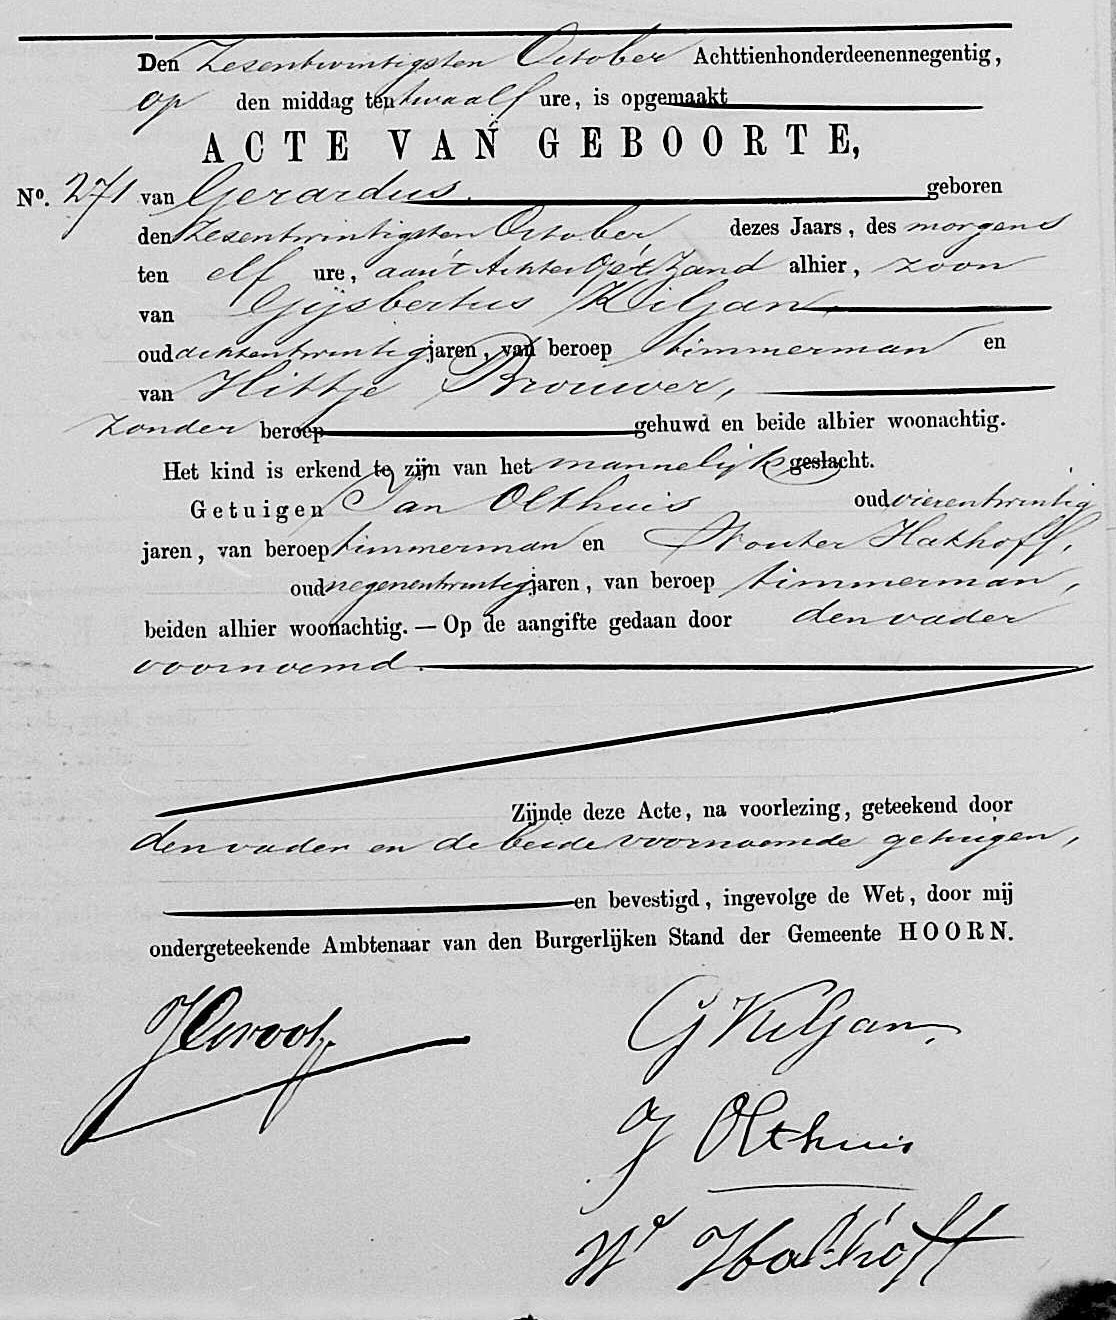 Den Zesentwintigsten October Achttienhonderdeenennegentig,
op den middag ten twaalf ure, is opgemaakt
ACTE VAN GEBOORTE,
No. 271 van Gerardus. geboren
den Zesentwintigsten October dezes Jaars, des morgens
ten elf ure, aan't Achter Op't Zand alhier, zoon
van Gijsbertus Kiljan,
oud achtentwintig jaren, van beroep timmerman en
van Hittje Brouwer,
zonder beroep gehuwd en beide alhier woonachtig.
Het kind is erkend te zijn van het mannelijk geslacht.
Getuigen Jan Olthuis oud vierentwintig
jaren, van beroep timmerman en Wouter Hakhoff,
oud negenentwintig jaren, van beroep timmerman,
beiden alhier woonachtig. — Op de aangifte gedaan door den vader
voornoemd.
Zijnde deze Acte, na voorlezing, geteekend door
den vader en de beide voornoemde getuigen,
en bevestigd, ingevolge de Wet, door mij
ondergeteekende Ambtenaar van den Burgerlijken Stand der Gemeente HOORN.
G Kiljan.
J Olthuis
Wr Hakhoff